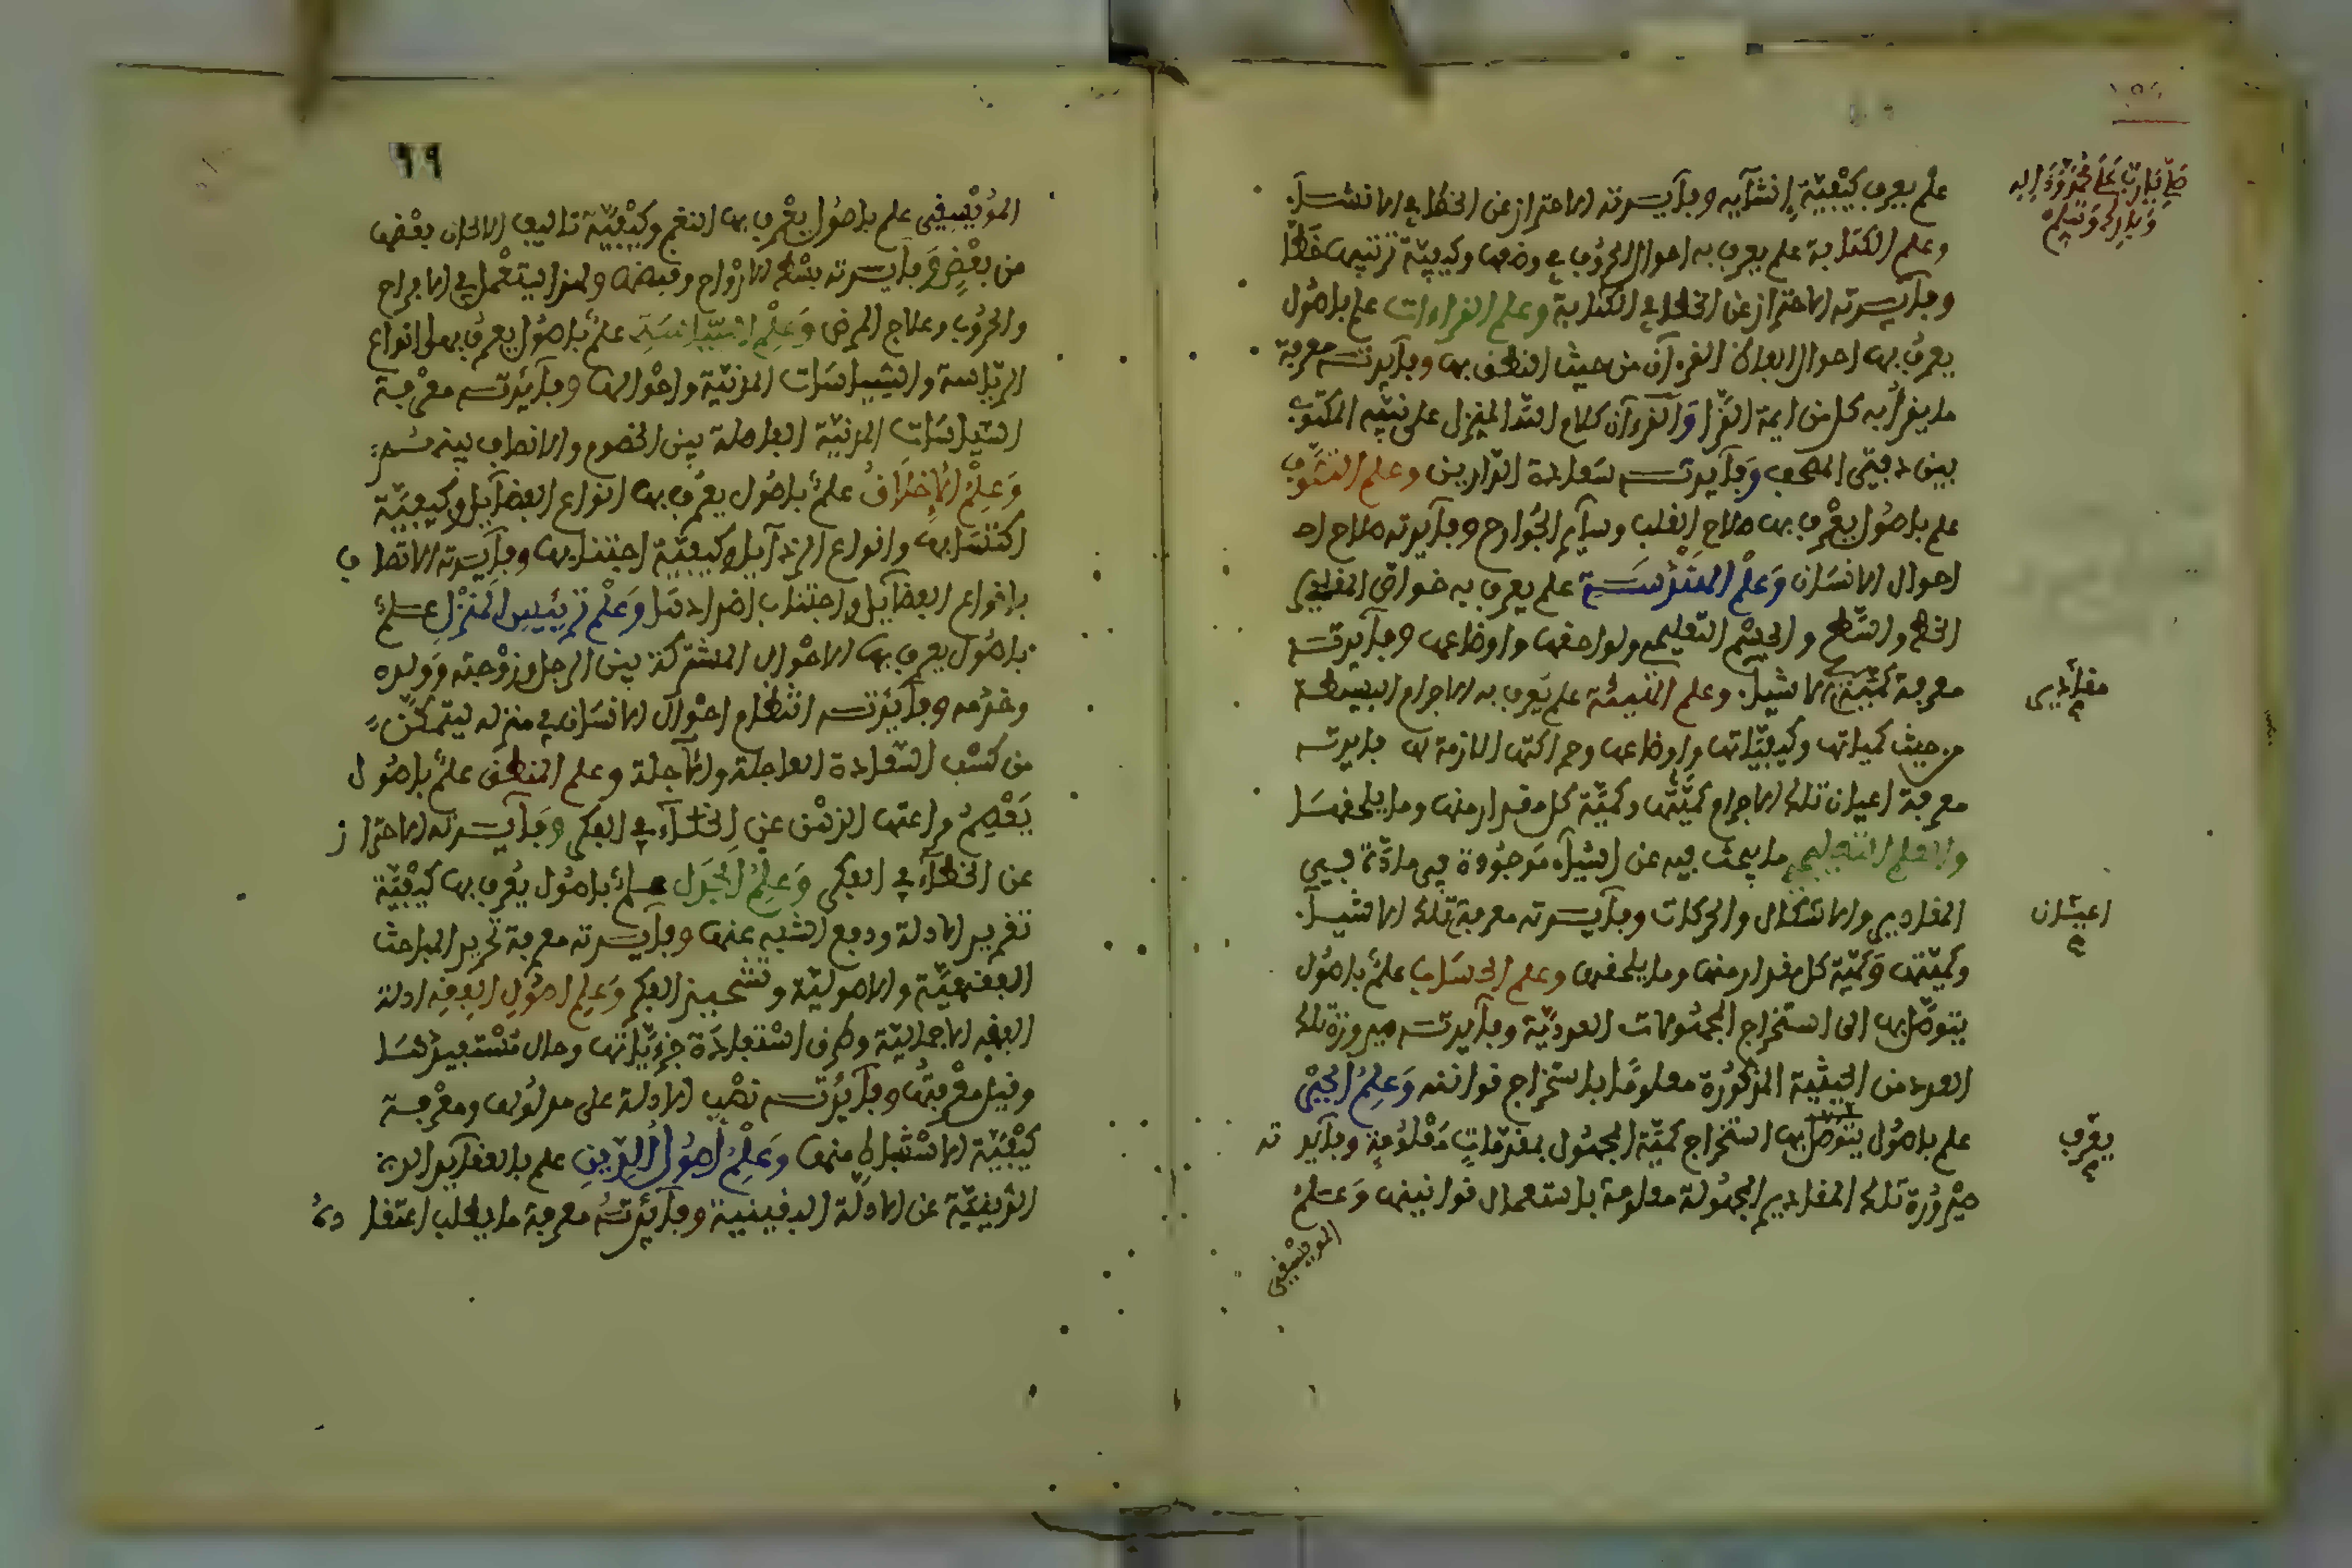 صل يا رب على محمد وءاله
وبارك وسلم
علم يعرف كيفيّة إنشآيه وفآيدته الاحتراز عن الخطا في الانشآ.
وعلم الكتابة علم يعرف به احوال الحروف في وضعها وكيفيّة ترتيبها خطّا
وفآيدته الاحتراز عن الخطا في الكتابة وعلم القراءات علم باصُول
يعرفُ بها احوال الفاظ القرءان من حيث النطق بها وفآيدته معرفة
ما يقرأ به كل من ايمة القرّا وَالقرءان كلام الله المنزل على نبيّه المكتوب
بين دفتي المصحف وَفآيدته سَعادة الدّارين وعلم التصَوّف
علم باصُول يعْرف بها صلاح القلب وسآير الجُوارح وفآيدته صلاح
احوال الانسَان وَعلْم الهَنْدسَةِ علم يعرف به خواص المقادير
الخط والسّطح والجسْم التعليمي ولواحقها واوضاعها وفآيدته
معرفة كميّة الاشيآ. وعلم الهيئة علم يَعرف به الاجرام البسيطة
مقادير
من حيث كمياتها وكيفيّاتها واوضاعها وحركاتها اللازمة لها فايدته
معرفة اعيان تلك الاجرام كميّتها وكميّة كل مقدار منها وما يلحقهَا
والعلم التعليمي ما يبحث فيه عن اشيآء مَوجوُدة في مادّة فهي
المقادير والاشكال والحركات وفآيدته معرفة تلك الاشيآ.
اعيَان
وكميّتها وَكميّة كل مقدار منها وما يلحقها وعلم الحسَاب علمٌ باصُول
يتوصّل بها الى استخراج المجهُولات العدديّة وفآيدته صيرورة تلك
العدد من الحيثية المذكورة معلومًا باستخراج قوانينه وَعلمُ الجبْر
علم باصُول يتوصّل بها استخراج كميّة المجهُول بمقدّماتٍ مَعْلوُمةٍ وفآيدته
يعرّف
صيْرورَة تلك المقادير المجهُولة معلومة باستعمال قوانينها وَعلمُ
الموسيقى
٦٩
الموُيْسِيقِى علم باصُول يعْرف بها النغم وكيْفيّة تاليف الالحان بعْضها
من بعْضٍ وَفآيدته بسْط الارْواح وقبضها ولهذا يستعْمل في الافراح
والحرُوب وعلاج المرضى وَعلْم السّيَاسَةِ علمٌ باصُول يعرفُ بها انواع
الرّياسة والسّيَاسَات المدنيّة واحْوالها وفآيدته معْرفة
السّياسَاتِ المدنيّة الفاصلة بين الخصوم والانصاف بينهُم:
وَعلْمُ الاخلَاقُ علمٌ باصُول يعرف بها انواع الفضآيل وكيفيّة
اكتسَابها وانواع الرذآيل وكيفيّة اجتنابها وفآيدته الاتصاف
بانواع الفضآيل واجتناب اضدادهَا وَعلْم تدبير المنزل علمٌ
باصُول يعرف بها الاحْوال المشتركة بين الرجل وزوْجته وَولده
وخدَمه وفآيدته انتظام احْوال الانسَان في منزله ليتمكّن
من كسْب السّعادة العاجلة والاجلة وعلم المنطق علمٌ باصُول
يَعْصِمُ مراعتها الذهْن عن الخطآء في الفكر وَفآيدته الاحتراز
عن الخطآء في الفكر وَعلمُ الجَدَل علمٌ باصُول يُعرف بها كيْفيّة
تقرير الادلة ودفع الشبه عنها وفآيدته معرفة تحرير المباحث
الفقهيَّة والاصوليّة وتشحيذ الفكر وَعلم اصُول الفقهِ ادلة
الفقه الاجماليّة وطرق اسْتفادَة جزءيّاتها وحال مُسْتفيدهَا
وقيل معْرفتُها وفآيدته نصْب الادلة على مدلُولها ومعْرفة
كيْفيّة الاسْتنباط منها وَعلْمُ أُصوُل الدّينِ علم بالعقآيد
عن الادلّة اليقينية وفآيدتهُ معرفة ما يطلب اعتقادهُ